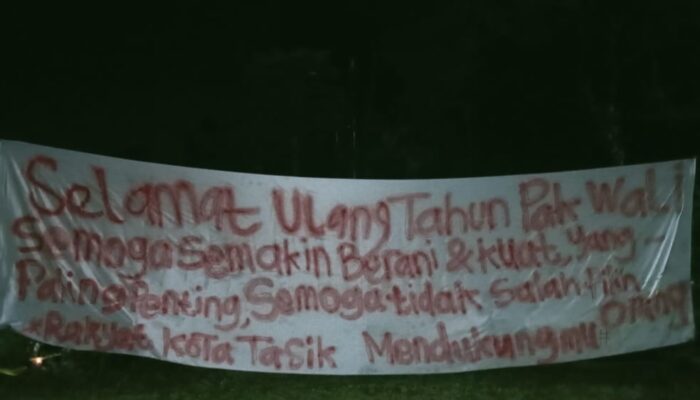 Selamat Ulang Tahun Pak Wali
Semoga Semakin Berani & Kuat, Yang -
Paling Penting, Semoga tidak Salah Pilih
Orang
*Rakyat Kota Tasik Mendukungmu #